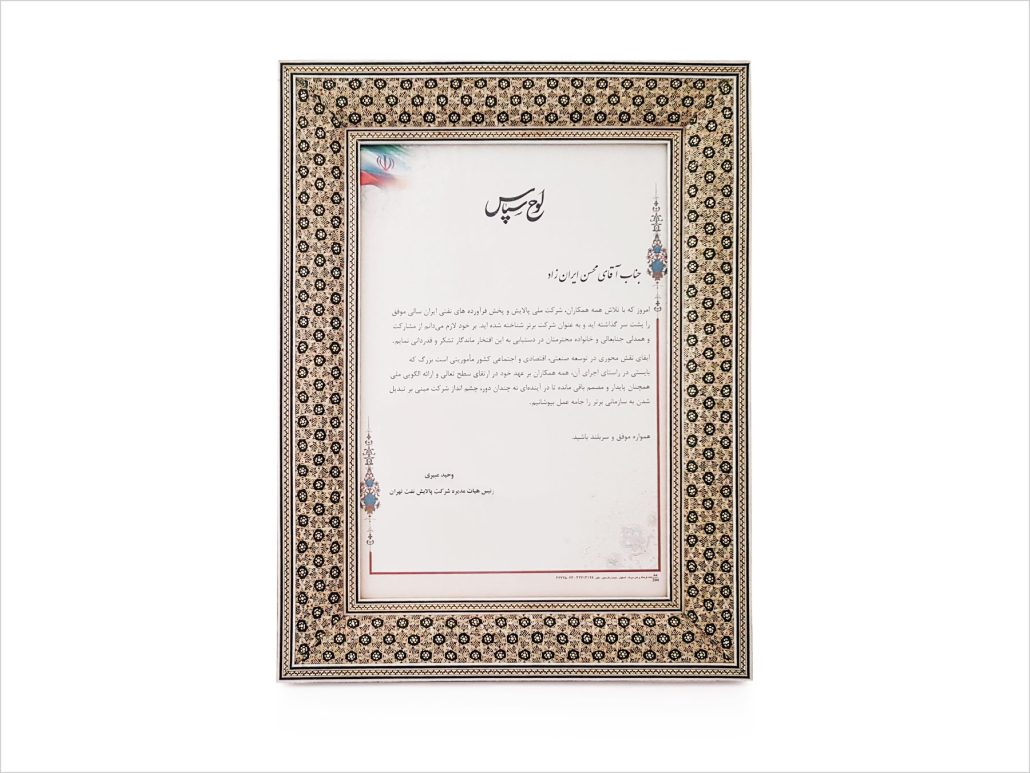 لوح سپاس
جناب آقای محسن ایران زاد
امروز که با تلاش همه همکاران، شرکت ملی پالایش و پخش فرآورده های نفتی ایران سالی موفق
را پشت سر گذاشته اید و به عنوان شرکت برتر شناخته شده اید. بر خود لازم می‌دانم از مشارکت
و همدلی جنابعالی و خانواده محترمتان در دستیابی به این افتخار ماندگار تشکر و قدردانی نمایم.
ایفای نقش محوری در توسعه صنعتی، اقتصادی و اجتماعی کشور مأموریتی است بزرگ که
بایستی در راستای اجرای آن، همه همکاران بر عهد خود در ارتقای سطح تعالی و ارائه الگویی ملی
همچنان پایدار و مصمم باقی مانده تا در آینده‌ای نه چندان دور، چشم انداز شرکت مبنی بر تبدیل
شدن به سازمانی برتر را جامه عمل بپوشانیم.
همواره موفق و سربلند باشید.
وحید عبیری
رئیس هیات مدیره شرکت پالایش نفت تهران